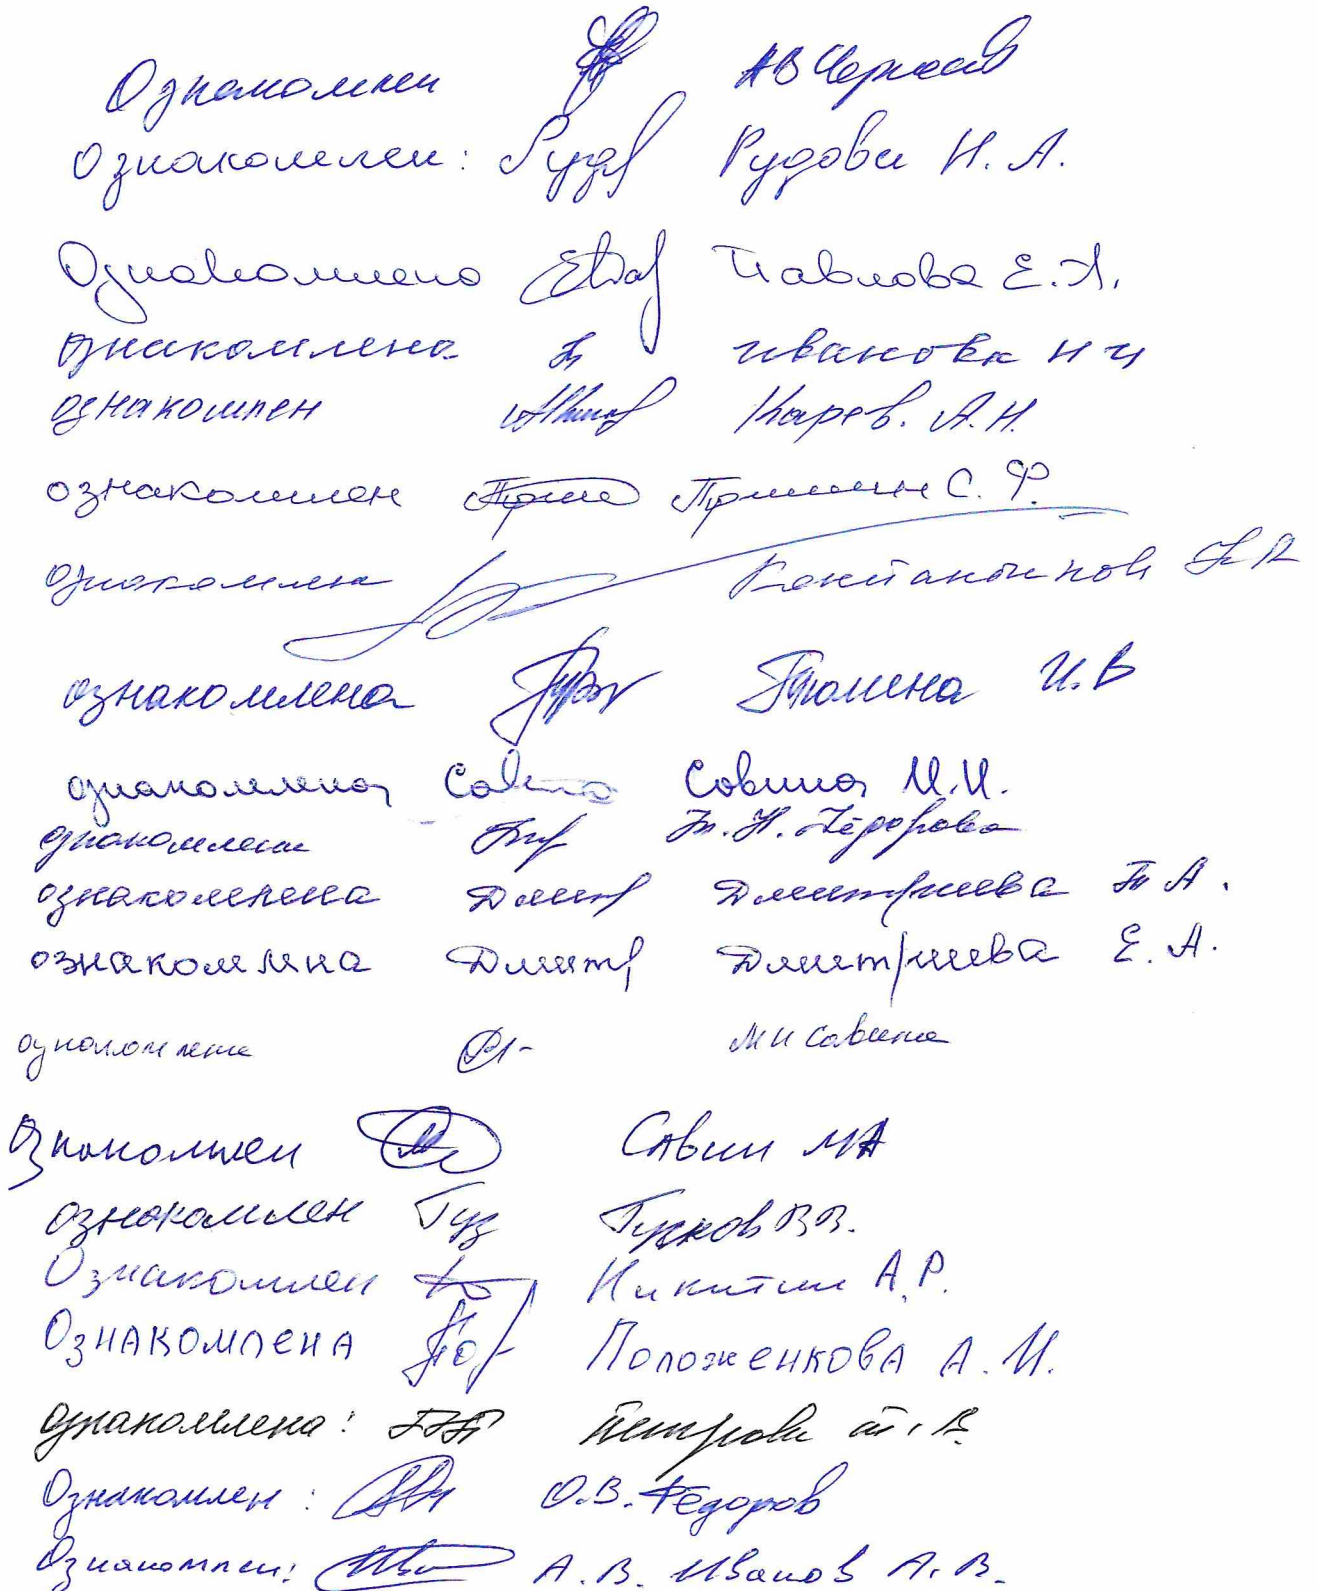 Ознакомлен АВ Черкасов
Ознакомлен: Руд Рудова Н. А.
Ознакомлена Павлова Е. А.
Ознакомлена Иванова Н И
ознакомлен Карев. А. Н.
ознакомлен С. Ф.
ознакомлен Константинов
ознакомлена И. В
ознакомлена Савина Савина М. И.
ознакомлена Т. Н. Фёдорова
ознакомлена Дмит Дмитриева Т А.
ознакомлна Дмитр Дмитриева Е. А.
ознакомлена М И Савина
Ознакомлен Савин МА
ознакомлен Гуз В В.
Ознакомлен Никитин А. Р.
Ознакомлена Положенкова А. И.
ознакомлена: Петрова Т. В.
Ознакомлен: О. В. Фёдоров
Ознакомлен: А. В. Иванов А. В.